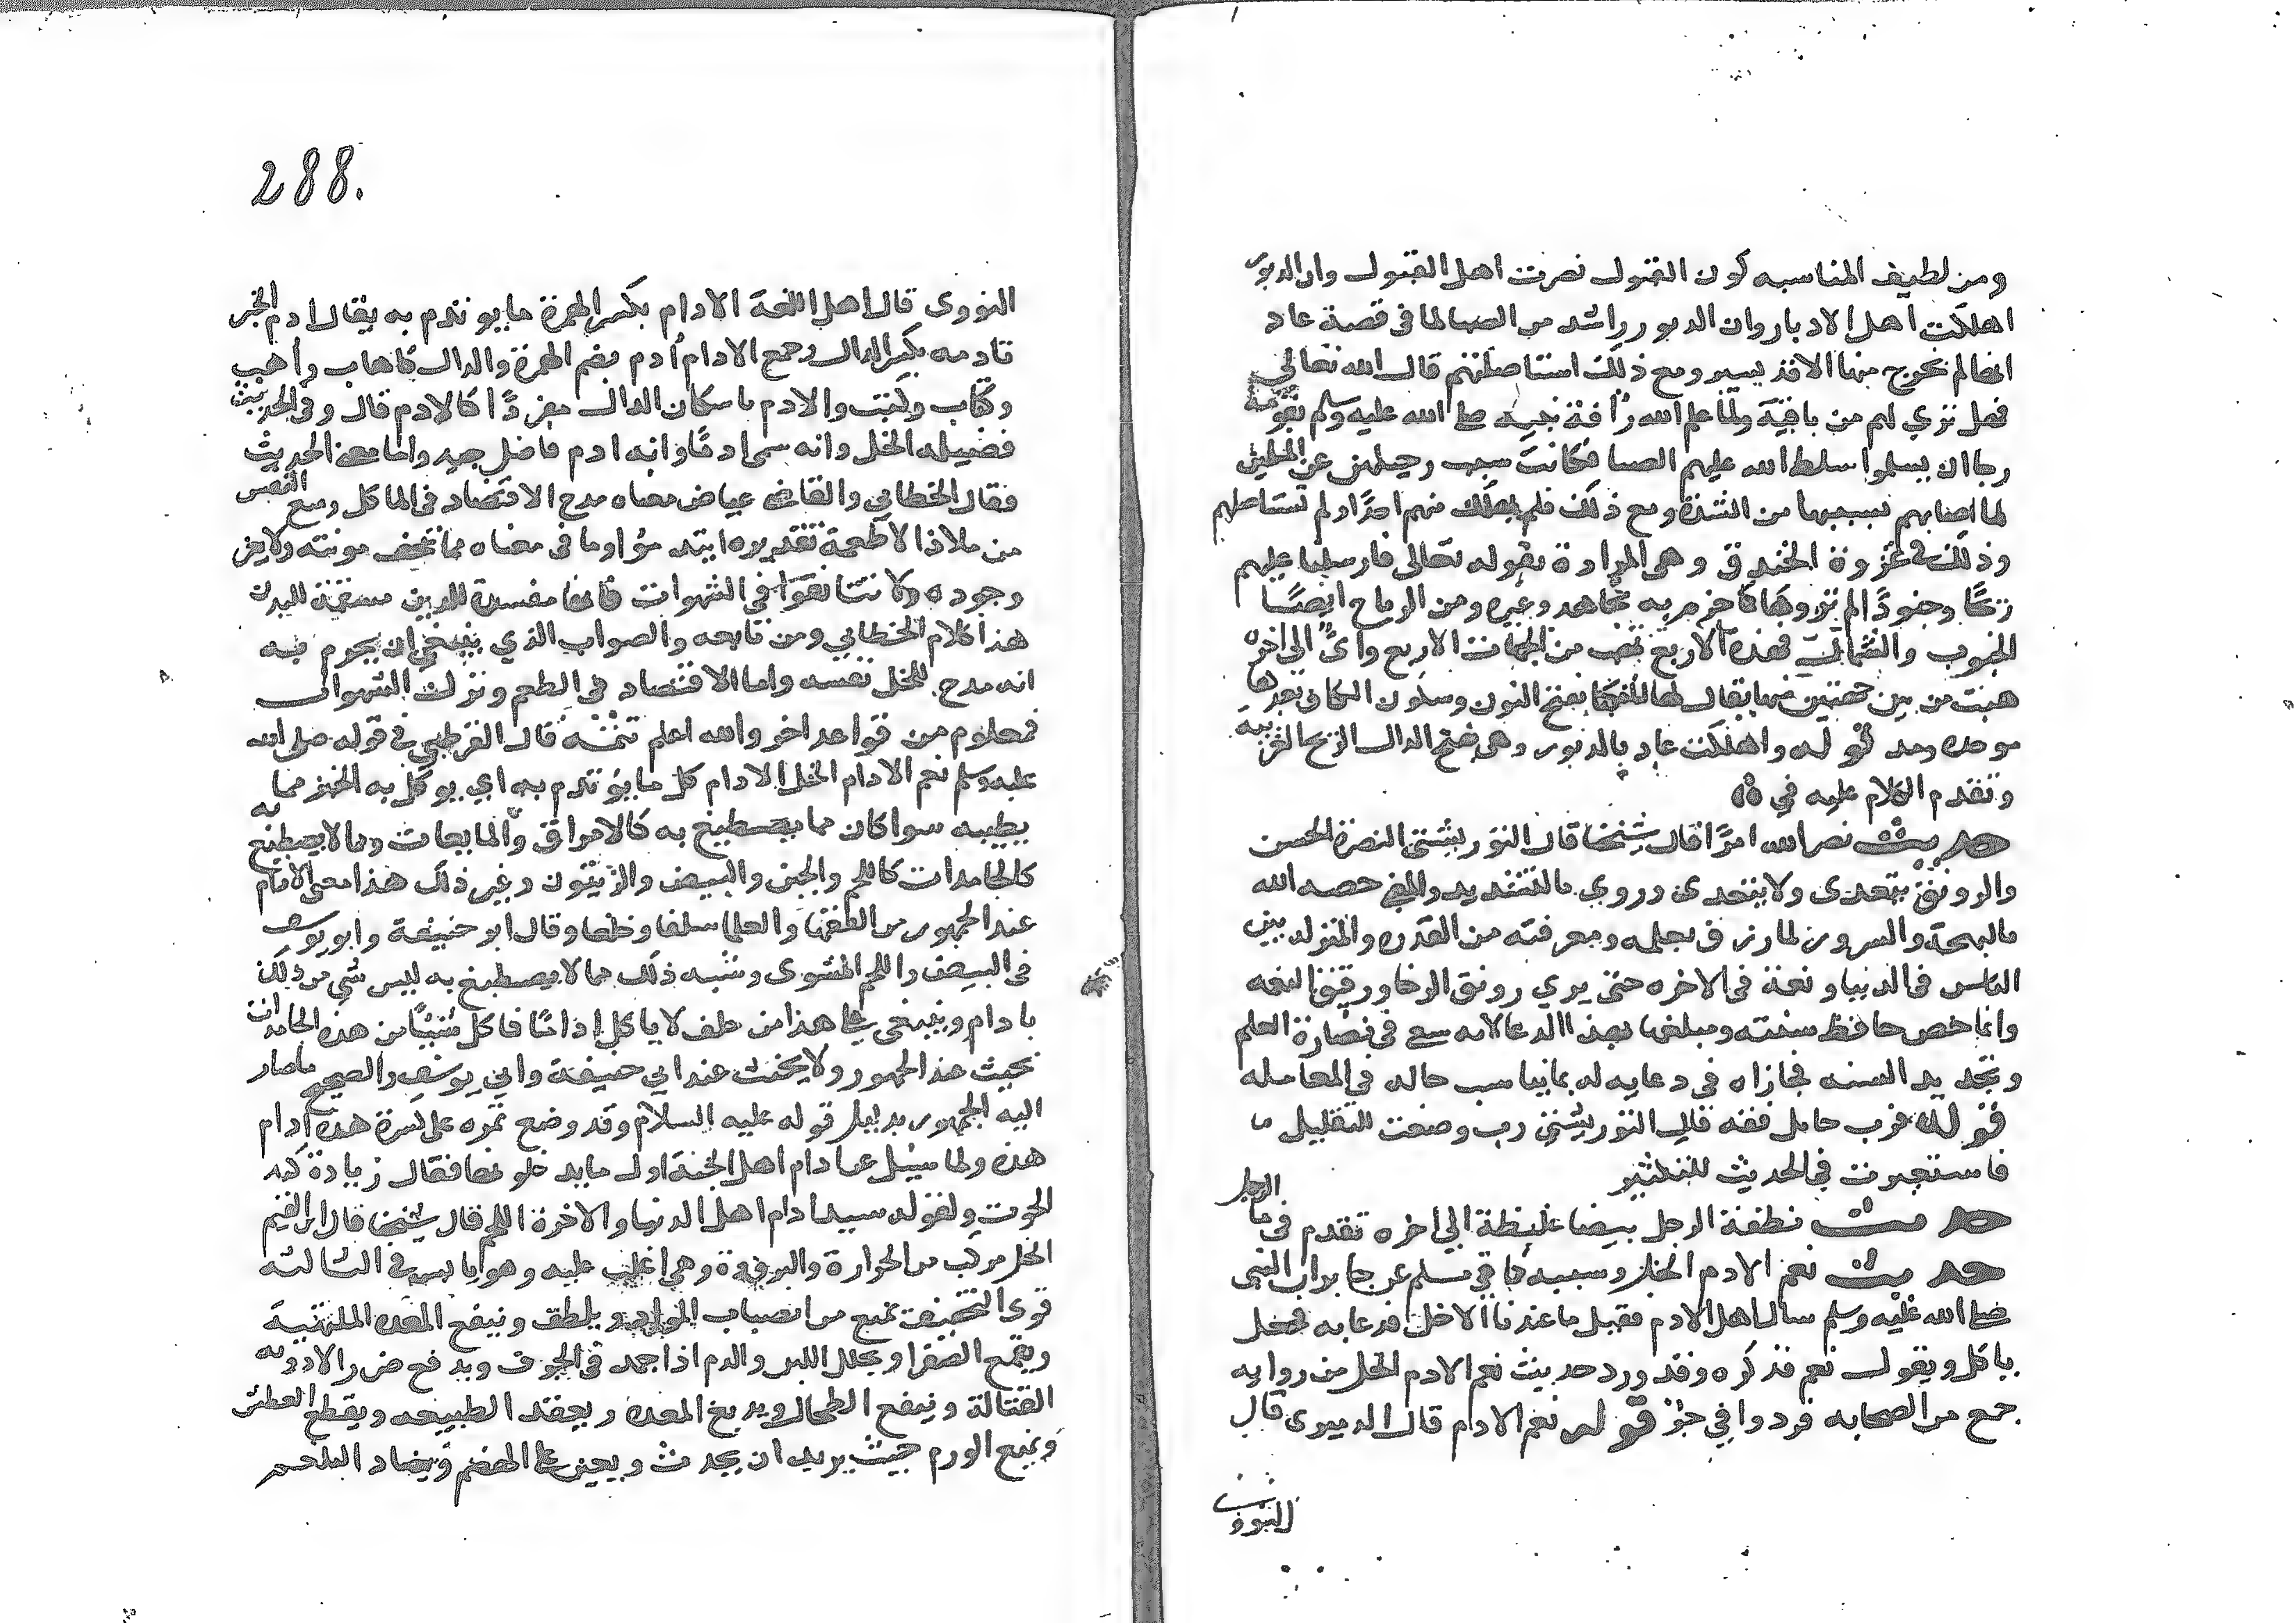 ومن لطيف المناسبه كون القبول نصرت اهل القبول وان الدبور
اهلكت اهل الادبار وان الدبور اشد من الصبا لما في قصة عاد
انها لم تخرج منها الا قدر يسير ومع ذلك استاصلتهم قال الله تعالى
فهل تري لهم من باقية ولما علم الله رأفة نبيه صلى الله عليه وسلم بقومه
رجا ان يسلموا سلط الله عليهم الصبا فكانت سبب رحيلهم عن المسلمين
لما اصابهم بسببها من الشدة ومع ذلك فلم يهلك منهم احدا ولم تستاصلهم
وذلك في غزوة الخندق وهي المرادة بقوله تعالى فارسلنا عليهم
ريحا وجنودا لم تروها كما جزم به مجاهد وغيره ومن الرياح ايضا
الجنوب والشمال فهذه الاربع تهب من الجهات الاربع واي الى اخره
هبت من بين جهتين منها يقال لها النكبا بفتح النون وسكون الكاف بعدها
موحده ومد قوله واهلكت عاد بالدبور وهي بفتح الدال الريح الغربية
وتقدم الكلام عليه في
حديث نضر الله امرا قال شيخنا قال التوربشتي النضرة الحسن
والرونق يتعدى ولا يتعدى وروي بالتشديد والمعنى خصه الله
بالبهجة والسرور لما رزق بعلمه ومعرفته من القدر والمنزلة بين
الناس في الدنيا ونعمة في الاخره حتى يري رونق الرخا ورقيق النعمه
وانما خص حافظ سنته ومبلغها بهذا الدعا لانه سعى في نضارة العلم
وتجديد السنه فجازاه في دعايه له بما يناسب حاله في المعامله
قوله فرب حامل فقه قال التوربشتي رب وضعت للتقليل
فاستعيرت في الحديث للتكثير
حديث نطفة الرجل بيضا غليظة الي اخره تقدم في ما الرجل
حديث نعم الادم الخل وسببه كما في مسلم عن جابر ان النبي
صلى الله عليه وسلم سال اهله الادم فقيل ما عندنا الا خل فدعا به فجعل
ياكل ويقول نعم فذكره وقد ورد حديث نعم الادم الخل من رواية
جمع من الصحابه قوله نعم الادام قال الدميرى قال
النووي
288.
النووى قال اهل اللغة الادام بكسر الهمزة ما يوتدم به يقال ادم الخبز
يادمه بكسر الدال وجمع الادام أدم بضم الهمزة والدال كاهاب وأهب
وكتاب وكتب والادم باسكان الدال مفردا كالادم قال وفي الحديث
فضيله الخل وانه سمى ادما وانه ادم فاضل جيد واما معنى الحديث
فقال الخطابي والقاضي عياض معناه مدح الاقتصاد في الماكل ومنع النفس
من ملاذ الاطعمة تقديره ايتدموا وما في معناه مما تخف مونته ولا يعز
وجوده ولا تتانقوا في الشهوات فانها مفسدة للدين مسقمة للبدن
هذا كلام الخطابي ومن تابعه والصواب الذي ينبغي ان يجزم به
انه مدح للخل نفسه واما الاقتصاد في الطعم وترك الشهوات
فمعلوم من قواعد اخر والله اعلم تتمه قال القرطبي في قوله صلى الله
عليه وسلم نعم الادام الخل الادام كل ما يؤتدم به اي يوكل به الخبز مما
يطيبه سوا كان مما يصطبغ به كالامراق والمايعات وما لا يصطبغ به
كالجامدات كاللحم والجبن والبيض والزيتون وغير ذلك هذا معنى الادام
عند الجمهور من الفقها والعلما سلفا وخلفا وقال ابو حنيفة وابو يوسف
في البيض واللحم المشوى وشبه ذلك مما لا يصطبغ به ليس شي من ذلك
بادام وينبغي على هذا من حلف لا ياكل اداما فاكل شيئا من هذه الجامدات
يحنث عند الجمهور ولا يحنث عند ابي حنيفة وابي يوسف والصحيح ما صار
اليه الجمهور بدليل قوله عليه السلام وقد وضع تمره على كسرة هذه ادام
هذه ولما سيل عن ادام اهل الجنة اول ما يدخلونها فقال زيادة كبد
الحوت ولقوله سيد ادام اهل الدنيا والاخرة اللحم قال شيخنا قال ابن القيم
الخل مركب من الحرارة والبرودة وهي اغلب عليه وهو يابس في الثالثه
قوى التجفيف يمنع من انصباب المواد ويلطف وينفع المعده الملتهبة
ويقمع الصفرا ويحلل اللبن والدم اذا جمد في الجوف ويدفع ضرر الادويه
القتالة وينفع الطحال ويدبغ المعده ويعقد الطبيعه ويقطع العطش
ويمنع الورم حيث يريد ان يحدث ويعين على الهضم ويضاد البلغم